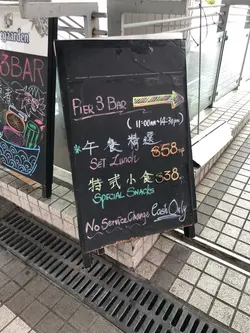 3 BAR
PIER 3 BAR
(11:00am~14:30pm)
*午餐精選
SET LUNCH $58up
特式小食 $38up
SPECIAL SNACKS
NO SERVICE CHARGE Cash Only